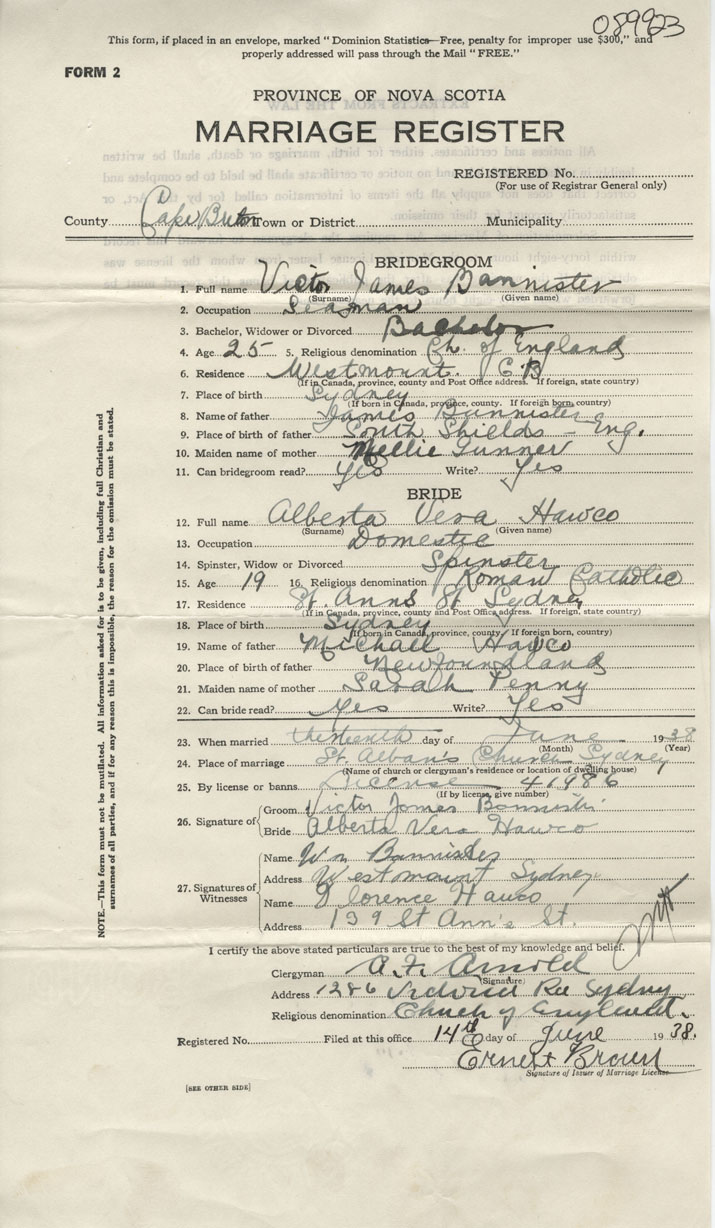 089923
This form, if placed in an envelope, marked "Dominion Statistics—Free, penalty for improper use $300," and
properly addressed will pass through the Mail "FREE."
FORM 2
PROVINCE OF NOVA SCOTIA
MARRIAGE REGISTER
REGISTERED No.
(For use of Registrar General only)
County Cape Breton Town or District Municipality
BRIDEGROOM
1. Full name Victor James Bannister
(Surname) (Given name)
2. Occupation Seaman
3. Bachelor, Widower or Divorced Bachelor
4. Age 25 5. Religious denomination Ch. of England
6. Residence Westmount. C.B
(If in Canada, province, county and Post Office address. If foreign, state country)
7. Place of birth Sydney
(If born in Canada, province, county. If foreign born, country)
8. Name of father James Bannister
9. Place of father South Shields - Eng.
10. Maiden name of mother Nellie Gunner
11. Can bridegroom read? Yes Write? Yes
BRIDE
12. Full name Alberta Vera Hawco
(Surname) (Given name)
13. Occupation Domestic
14. Spinster, Widow or Divorced Spinster
15. Age 19 16. Religious denomination Roman Catholic
17. Residence St. Anns St Sydney
(If in Canada, province, county and Post Office address. If foreign, state country)
18. Place of birth Sydney
(If born in Canada, province, county. If foreign born, country)
19. Name of father Michall Hawco
20. Place of birth of father Newfoundland
21. Maiden name of mother Sarah Penny
22. Can bride read? Yes Write? Yes
23. When married thirteenth day of June 1938
(Month) (Year)
24. Place of marriage St Alban's Church Sydney
(Name of church or clergyman's residence or location of dwelling house)
25. By license or banns License 41986
(If by license, give number)
26. Signature of Groom Victor James Bannister
Bride Alberta Vera Hawco
27. Signatures of Witnesses
Name Wm Bannister
Address Westmount Sydney
Name Florence Hawco
Address 139 St Ann's St.
I certify the above stated particulars are true to the best of my knowledge and belief.
Clergyman A. F. Arnold
(Signature)
Address 1286 Victoria Rd Sydney
Religious denomination Church of England.
Registered No. Filed at this office 14th day of June 1938.
Ernest Brown
Signature of Issuer of Marriage License
[SEE OTHER SIDE]
NOTE.—This form must not be mutilated. All information asked for is to be given, including full Christian and
surnames of all parties, and if for any reason this is impossible, the reason for the omission must be stated.